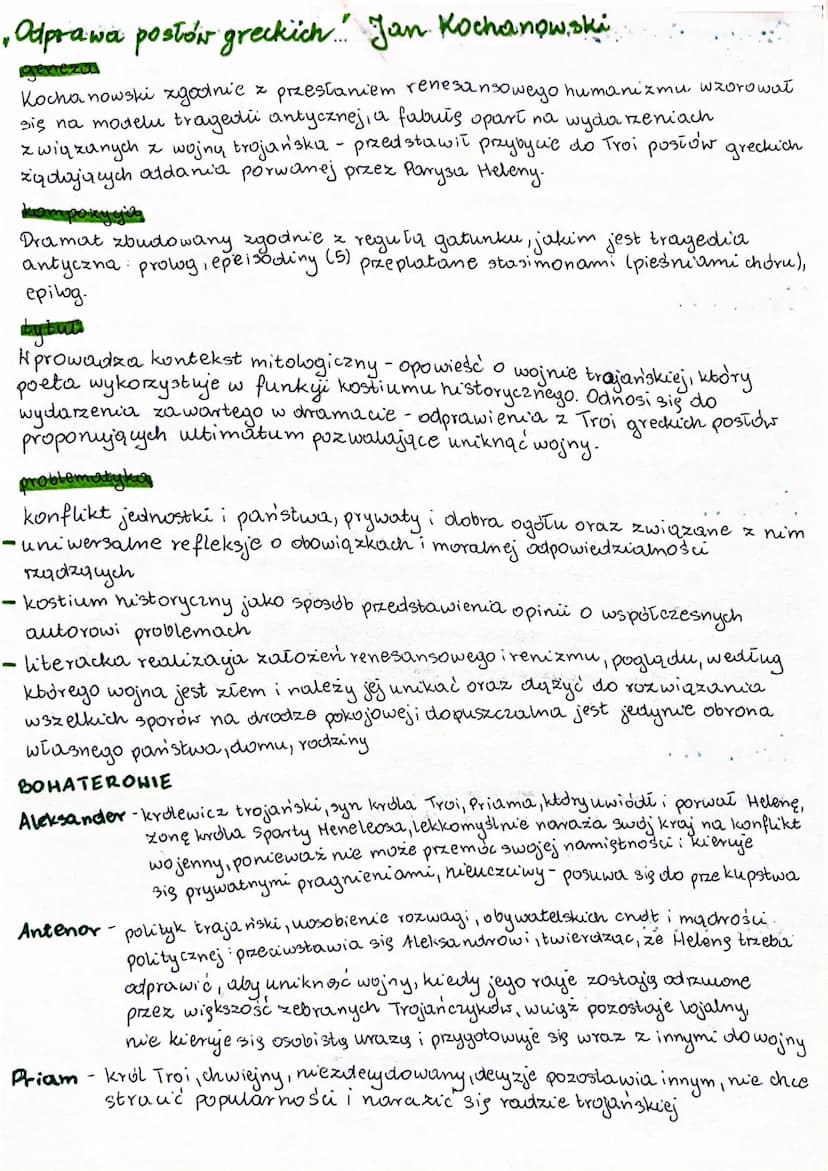 „Odprawa posłów greckich" Jan Kochanowski
geneza
Kochanowski zgodnie z przesłaniem renesansowego humanizmu wzorował
się na modelu tragedii antycznej, a fabułę oparł na wydarzeniach
związanych z wojną trojańska - przedstawił przybycie do Troi posłów greckich
żądających oddania porwanej przez Parysa Heleny.
kompozycja
Dramat zbudowany zgodnie z regułą gatunku, jakim jest tragedia
antyczna: prolog, epeisodiny (5) przeplatane stasimonami (pieśniami chóru),
epilog.
tytuł
Wprowadza kontekst mitologiczny - opowieść o wojnie trojańskiej, który
poeta wykorzystuje w funkcji kostiumu historycznego. Odnosi się do
wydarzenia zawartego w dramacie - odprawienia z Troi greckich posłów
proponujących ultimatum pozwalające uniknąć wojny.
problematyka
konflikt jednostki i państwa, prywaty i dobra ogółu oraz związane z nim
- uniwersalne refleksje o obowiązkach i moralnej odpowiedzialności
rządzących
- kostium historyczny jako sposób przedstawienia opinii o współczesnych
autorowi problemach
- literacka realizacja założeń renesansowego irenizmu, poglądu, według
którego wojna jest złem i należy jej unikać oraz dążyć do rozwiązania
wszelkich sporów na drodze pokojowej; dopuszczalna jest jedynie obrona
własnego państwa, domu, rodziny
BOHATEROWIE
Aleksander - królewicz trojański, syn króla Troi, Priama, który uwiódł i porwał Helenę,
żonę króla Sparty Meneleosa, lekkomyślnie naraża swój kraj na konflikt
wojenny, ponieważ nie może przemóc swojej namiętności i kieruje
się prywatnymi pragnieniami, nieuczciwy - posuwa się do przekupstwa
Antenor - polityk trajański, uosobienie rozwagi, obywatelskich cnót i mądrości
politycznej: przeciwstawia się Aleksandrowi, twierdząc, że Helenę trzeba
odprawić, aby uniknąć wojny, kiedy jego racje zostają odrzucone
przez większość zebranych Trojańczyków, wciąż pozostaje lojalny,
nie kieruje się osobistą urazą i przygotowuje się wraz z innymi do wojny
Priam - król Troi, chwiejny, niezdecydowany, decyzje pozostawia innym, nie chce
stracić popularności i narazić się radzie trojańskiej